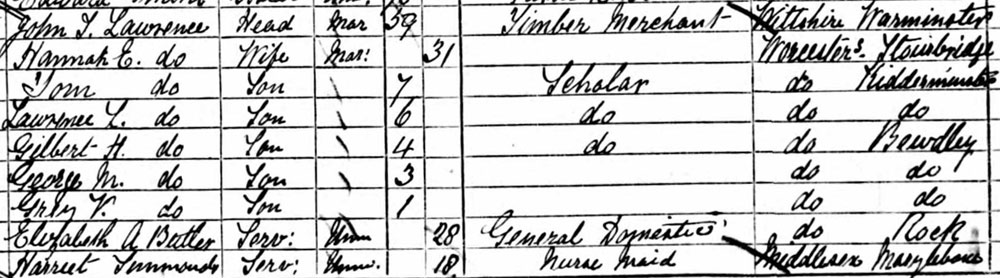 John T. Lawrence Head Mar 59 Timber Merchant Wiltshire Warminster
Hannah E. do Wife Mar: 31 Worcesters. Stourbridge
Tom do Son 7 Scholar do Kidderminster
Lawrence L. do Son 6 do do do
Gilbert H. do Son 4 do do Bewdley
George M. do Son 3 do do
Grey V. do Son 1 do do
Elizabeth A Butler Serv: Unm 28 General Domestic do Rock
Harriet Simmonds Serv: Unm. 18 Nurse Maid Middlesex Marylebone